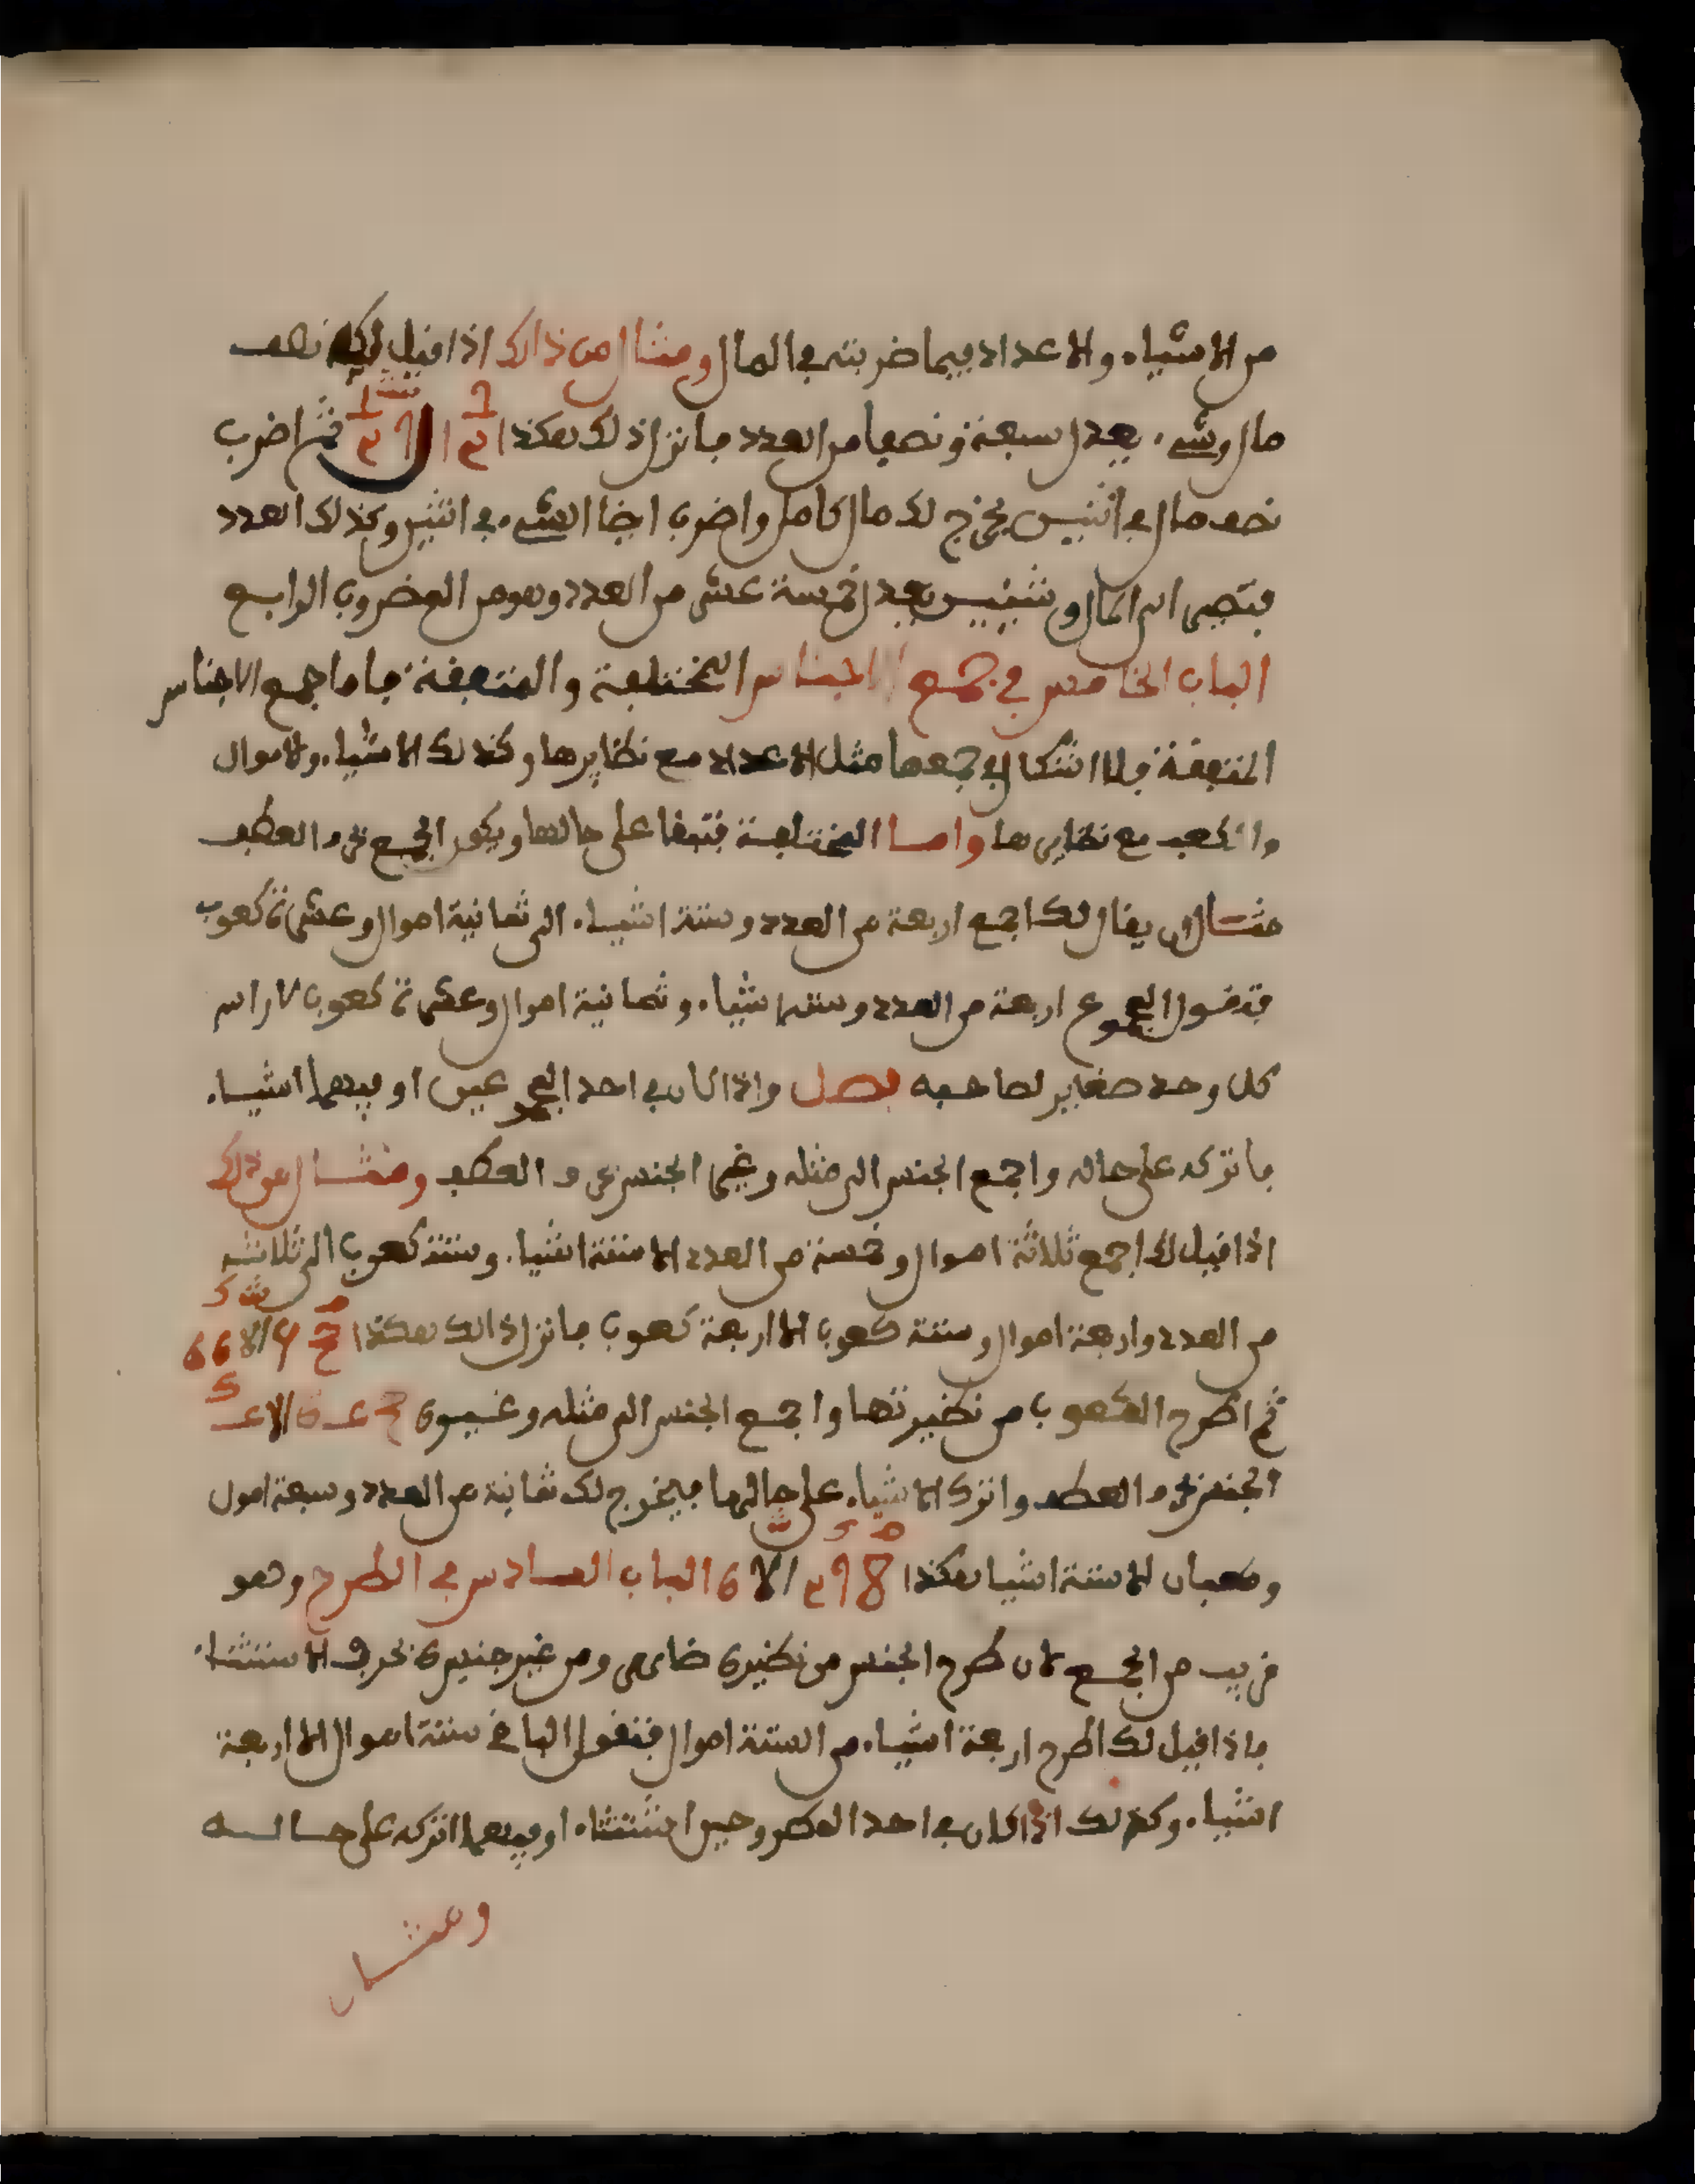 من الاشياء والاعداد فيما ضربته في المال ومثال من ذالك اذا قيل لك نصف
مال وشيء يعدل سبعة ونصفا من العدد فانزل ذلك هكذا ثم اضرب
نصف مال في اثنين يخرج لك مال كامل واضرب ايضا الشيء في اثنين وكذلك العدد
فتصير المال وشيئين يعدل خمسة عشر من العدد وهو من المضروب الرابع
الباب الخامس في جمع الاجناس المختلفة والمتفقة فاما جمع الاجناس
المتفقة فلا اشكال في جمعها مثل الاعداد مع نظايرها وكذلك الاشياء والاموال
والكعب مع نظايرها واما المختلفة فتبقا على حالها ويكون الجمع بحرف العطف
مثال ان يقال لك اجمع اربعة من العدد وستة اشياء الى ثمانية اموال وعشرة كعوب
فتقول المجموع اربعة من العدد وستة اشياء وثمانية اموال وعشرة كعوب لان اسم
كل وحد مغاير لصاحبه فصل واذا كان في احد المجموعين او فيهما اشياء
فاتركه على حاله واجمع الجنس الى مثله وغير الجنس بحرف العطف ومثال من ذلك
اذا قيل لك اجمع ثلاثة اموال وخمسة من العدد الا ستة اشيا وستة كعوب الى ثلاثة
من العدد واربعة اموال وستة كعوب الا اربعة كعوب فانزل ذالك هكذا
ثم اطرح الكعوب من نظيرتها واجمع الجنس الى مثله وغيره
الجنس بحرف العطف واترك الاشياء على حالها فيخرج لك ثمانية من العدد وسبعة امول
وكعبان الا ستة اشيا هكذا 8 الا 6 الباب السادس في الطرح وهو
قريب من الجمع لان طرح الجنس من نظيره ومن غير جنسه بحرف الاستثناء
فاذا قيل لك اطرح اربعة اشياء من الستة اموال فتقول الباقي ستة اموال الا اربعة
اشياء وكذلك اذا كان في احد المطروحين استثناء او فيهما اتركه على حاله
ومثال